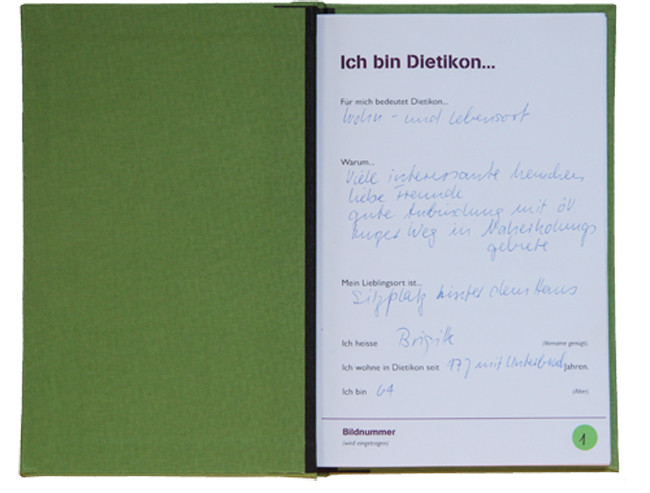 Ich bin Dietikon...
Für mich bedeutet Dietikon...
Wohn- und Lebensort
Warum...
Viele interessante Menschen
liebe Freunde
gute Anbindung mit öV
kurzer Weg in Naherholungs
gebiete
Mein Lieblingsort ist...
Sitzplatz hinter dem Haus
Ich heisse Brigitte (Vorname genügt).
Ich wohne in Dietikon seit 17 J mit Unterbruch Jahren.
Ich bin 64 (Alter).
Bildnummer
(wird eingetragen)
1